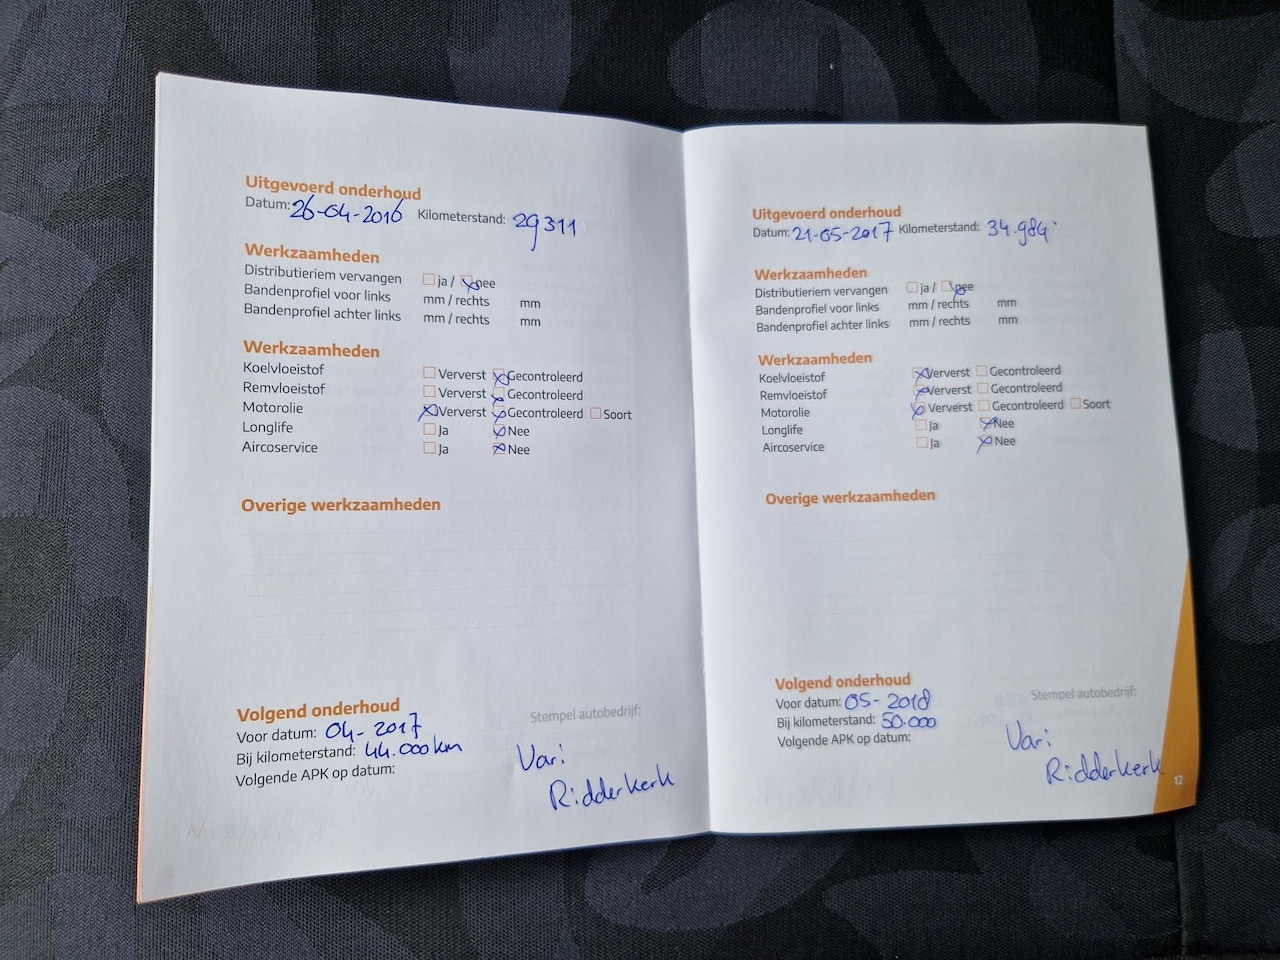 Uitgevoerd onderhoud
Datum: 26-04-2016 Kilometerstand: 29311
Werkzaamheden
Distributieriem vervangen ja / nee
Bandenprofiel voor links mm / rechts mm
Bandenprofiel achter links mm / rechts mm
Werkzaamheden
Koelvloeistof Ververst Gecontroleerd
Remvloeistof Ververst Gecontroleerd
Motorolie Ververst Gecontroleerd Soort
Longlife Ja Nee
Aircoservice Ja Nee
Overige werkzaamheden
Volgend onderhoud
Voor datum: 04-2017
Bij kilometerstand: 44.000 km
Volgende APK op datum:
Stempel autobedrijf:
Vari
Ridderkerk
Uitgevoerd onderhoud
Datum: 21-05-2017 Kilometerstand: 34.984
Werkzaamheden
Distributieriem vervangen ja / nee
Bandenprofiel voor links mm / rechts mm
Bandenprofiel achter links mm / rechts mm
Werkzaamheden
Koelvloeistof Ververst Gecontroleerd
Remvloeistof Ververst Gecontroleerd
Motorolie Ververst Gecontroleerd Soort
Longlife Ja Nee
Aircoservice Ja Nee
Overige werkzaamheden
Volgend onderhoud
Voor datum: 05-2018
Bij kilometerstand: 50.000
Volgende APK op datum:
Stempel autobedrijf:
Vari
Ridderkerk
12